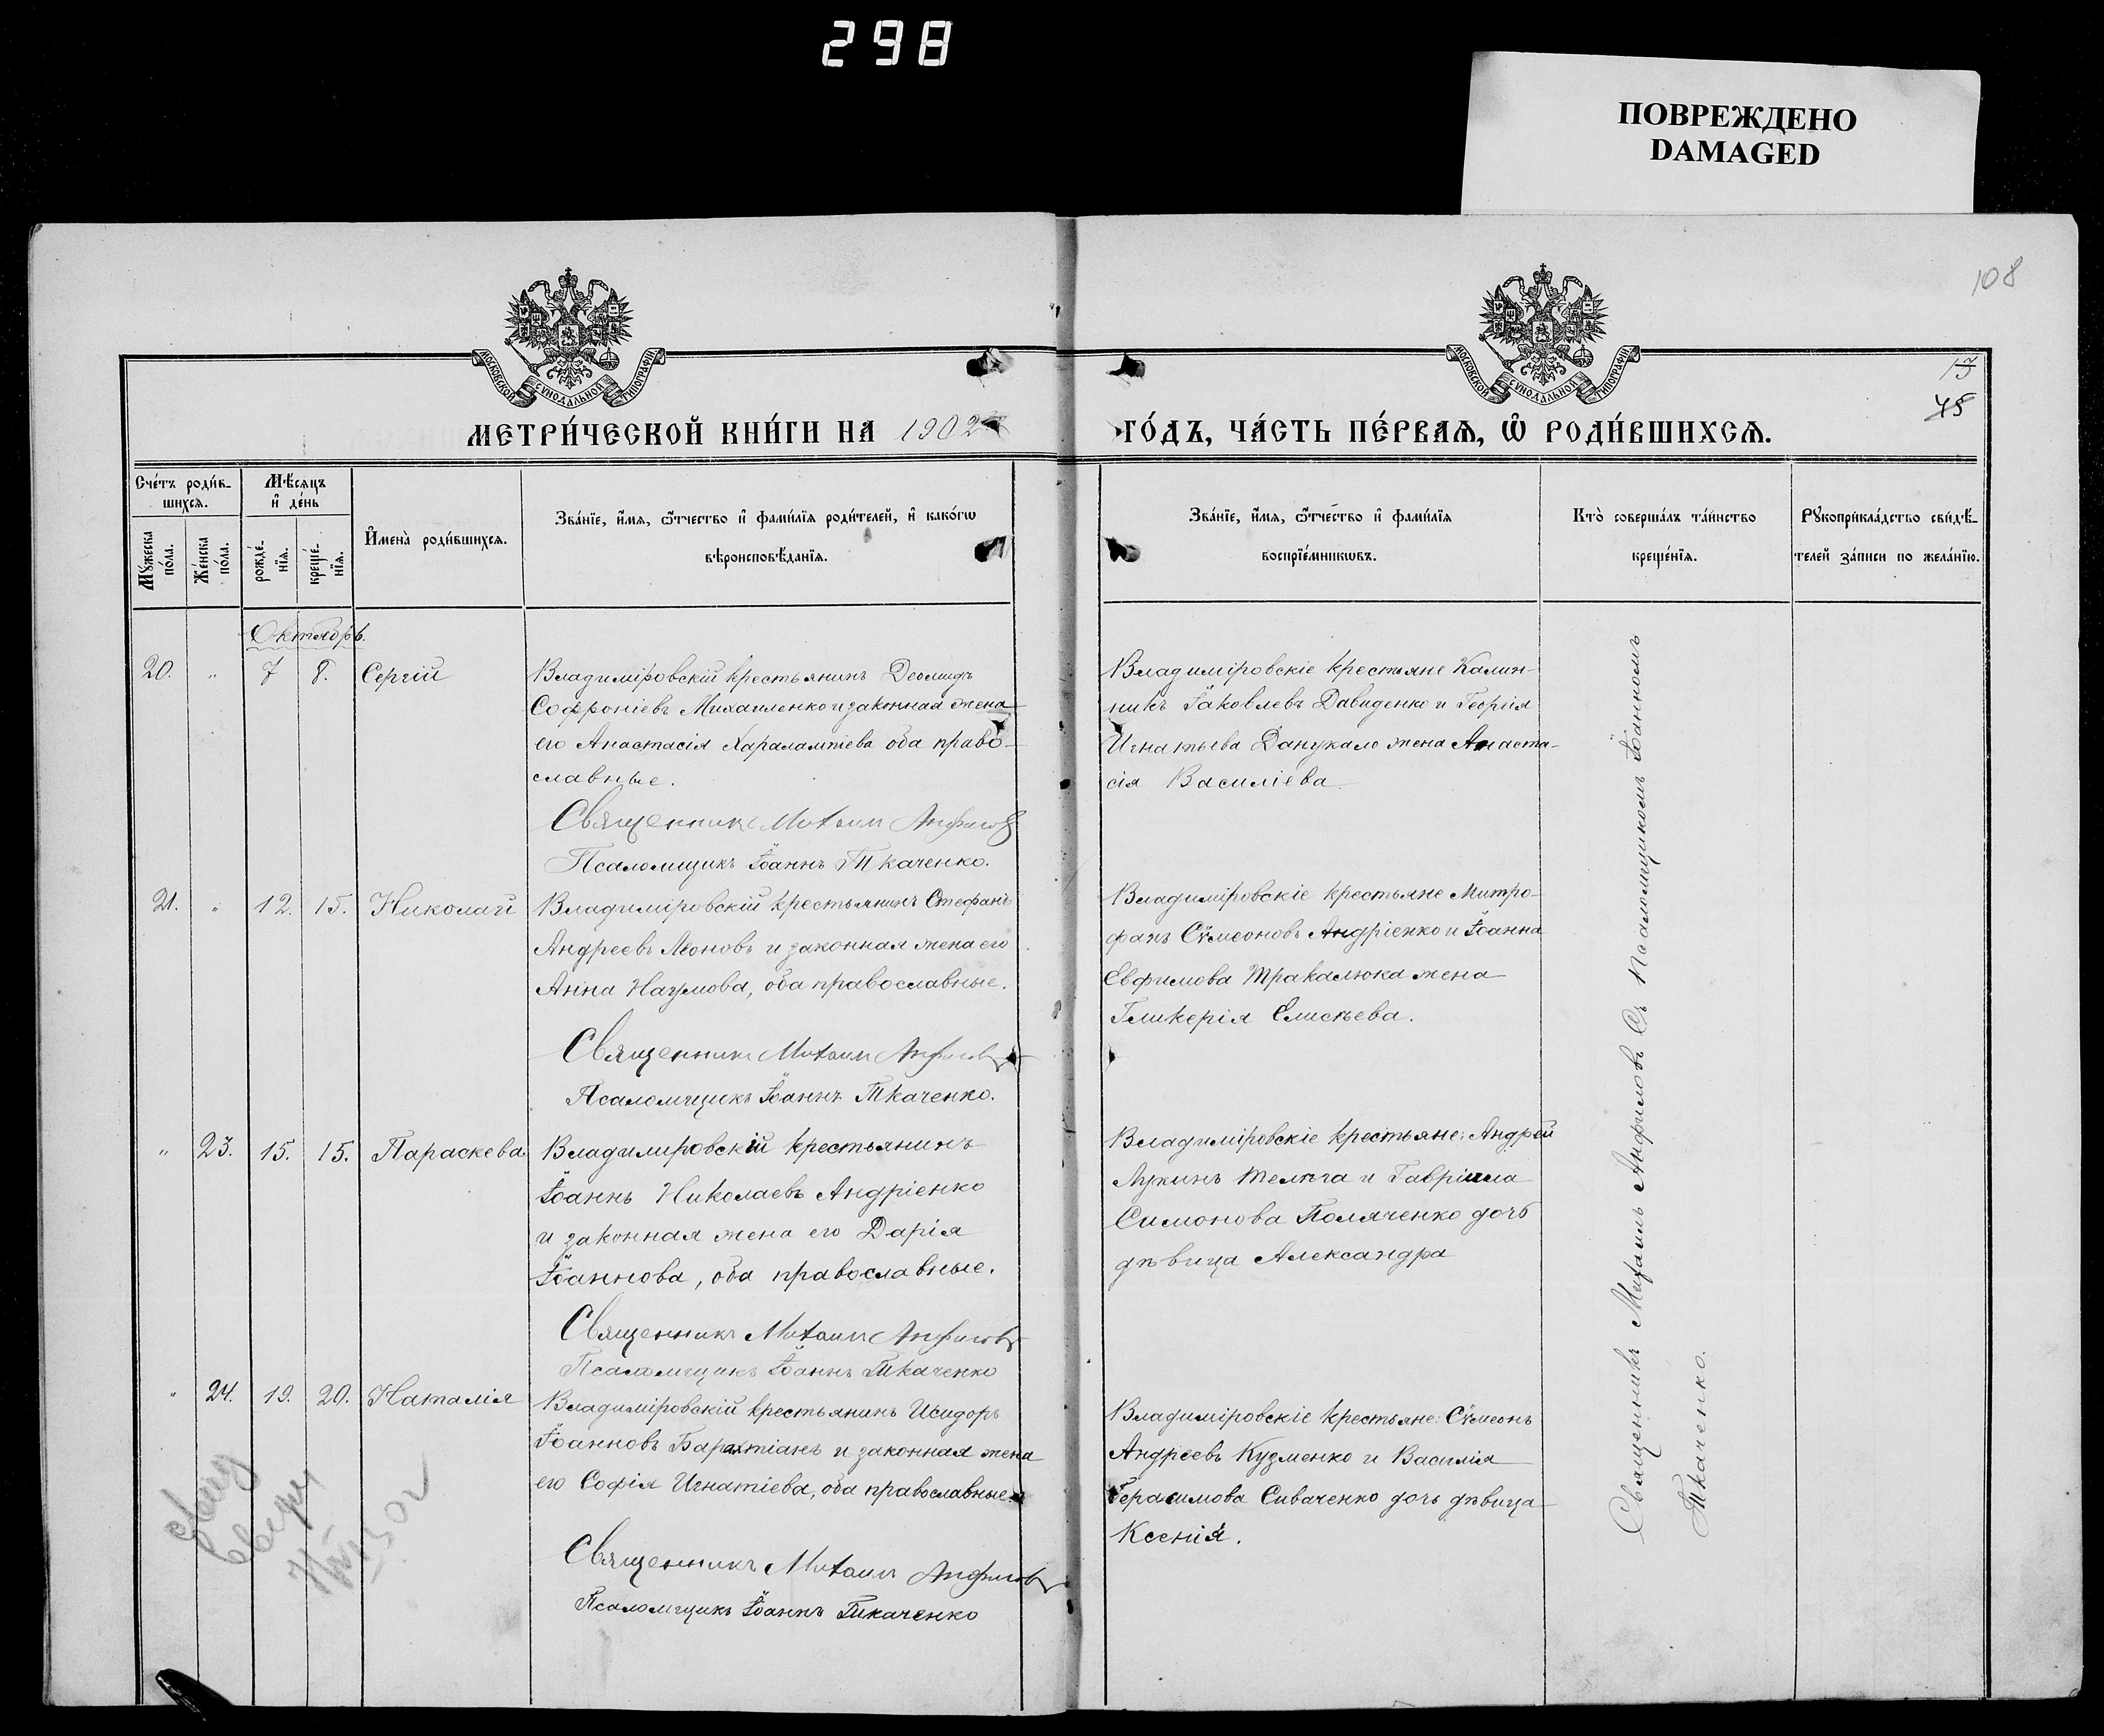 298
ПОВРЕЖДЕНО
DAMAGED
108
МОСКОВСКОЙ СѴНОДАЛЬНОЙ ТИПОГРАФІИ
МОСКОВСКОЙ СѴНОДАЛЬНОЙ ТИПОГРАФІИ
13
45
МЕТРИ́ЧЕСКОЙ КНИ́ГИ НА 1902
ГО́ДЪ, ЧА́СТЬ ПЕ́РВАѦ, Ѡ҆ РОДИ́ВШИХСѦ.
Сче́тъ роди́в-
шихсѧ.
Мꙋ́жеска
по́ла.
Же́нска
по́ла.
Мѣ́сѧцъ
и҆ де́нь
рожде́-
нїѧ.
креще́-
нїѧ.
И҆мена̀ роди́вшихсѧ.
Зва́нїе, и҆́мѧ, ѻ҆́тчество и҆ фами́лїѧ роди́телей, и҆ како́гѡ
вѣроисповѣ́данїѧ.
Зва́нїе, и҆́мѧ, ѻ҆́тчество и҆ фами́лїѧ
воспрїе́мникѡвъ.
Кто̀ соверша́лъ та́инство
креще́нїѧ.
Рꙋкоприкла́дство свидѣ́-
телей за́писи по жела́нїю.
Октябрь.
20. " 7 8. Сергій
Владиміровскій крестьянинъ Деомидъ
Софроніевъ Михайленко и законная жена
его Анастасія Харалампіева оба право-
славные.
Священникъ Михаилъ Анфиловъ
Псаломщикъ Іоаннъ Ткаченко.
Владиміровскіе крестьяне Калин-
никъ Іаковлевъ Давиденко и Георгія
Игнатьева Данукало жена Анаста-
сія Василіева.
21. " 12. 15. Николай
Владиміровскій крестьянинъ Стефанъ
Андреевъ Леоновъ и законная жена его
Анна Наумова, оба православные.
Священникъ Михаилъ Анфиловъ
Псаломщикъ Іоаннъ Ткаченко.
Владиміровскіе крестьяне Митро-
фанъ Сѵмеоновъ Андріенко и Іоанна
Евфимова Тракалюка жена
Гликерія Елисѣева.
" 23. 15. 15. Параскева
Владиміровскій крестьянинъ
Іоаннъ Николаевъ Андріенко
и законная жена его Дарія
Іоаннова, оба православные.
Священникъ Михаилъ Анфиловъ
Псаломщикъ Іоаннъ Ткаченко
Владиміровскіе крестьяне: Андрей
Лукинъ Телѣга и Гавріила
Симонова Поляченко дочь
дѣвица Александра
" 24. 19. 20. Наталія
Владиміровскій крестьянинъ Исидоръ
Іоанновъ Барахтіанъ и законная жена
его Софія Игнатіева, оба православные.
Священникъ Михаилъ Анфиловъ
Псаломщикъ Іоаннъ Ткаченко
Владиміровскіе крестьяне: Сѵмеонъ
Андреевъ Кузменко и Василія
Герасимова Сиваченко дочь дѣвица
Ксенія.
Священникъ Михаилъ Анфиловъ Съ Псаломщикомъ Іоанномъ
Ткаченко.